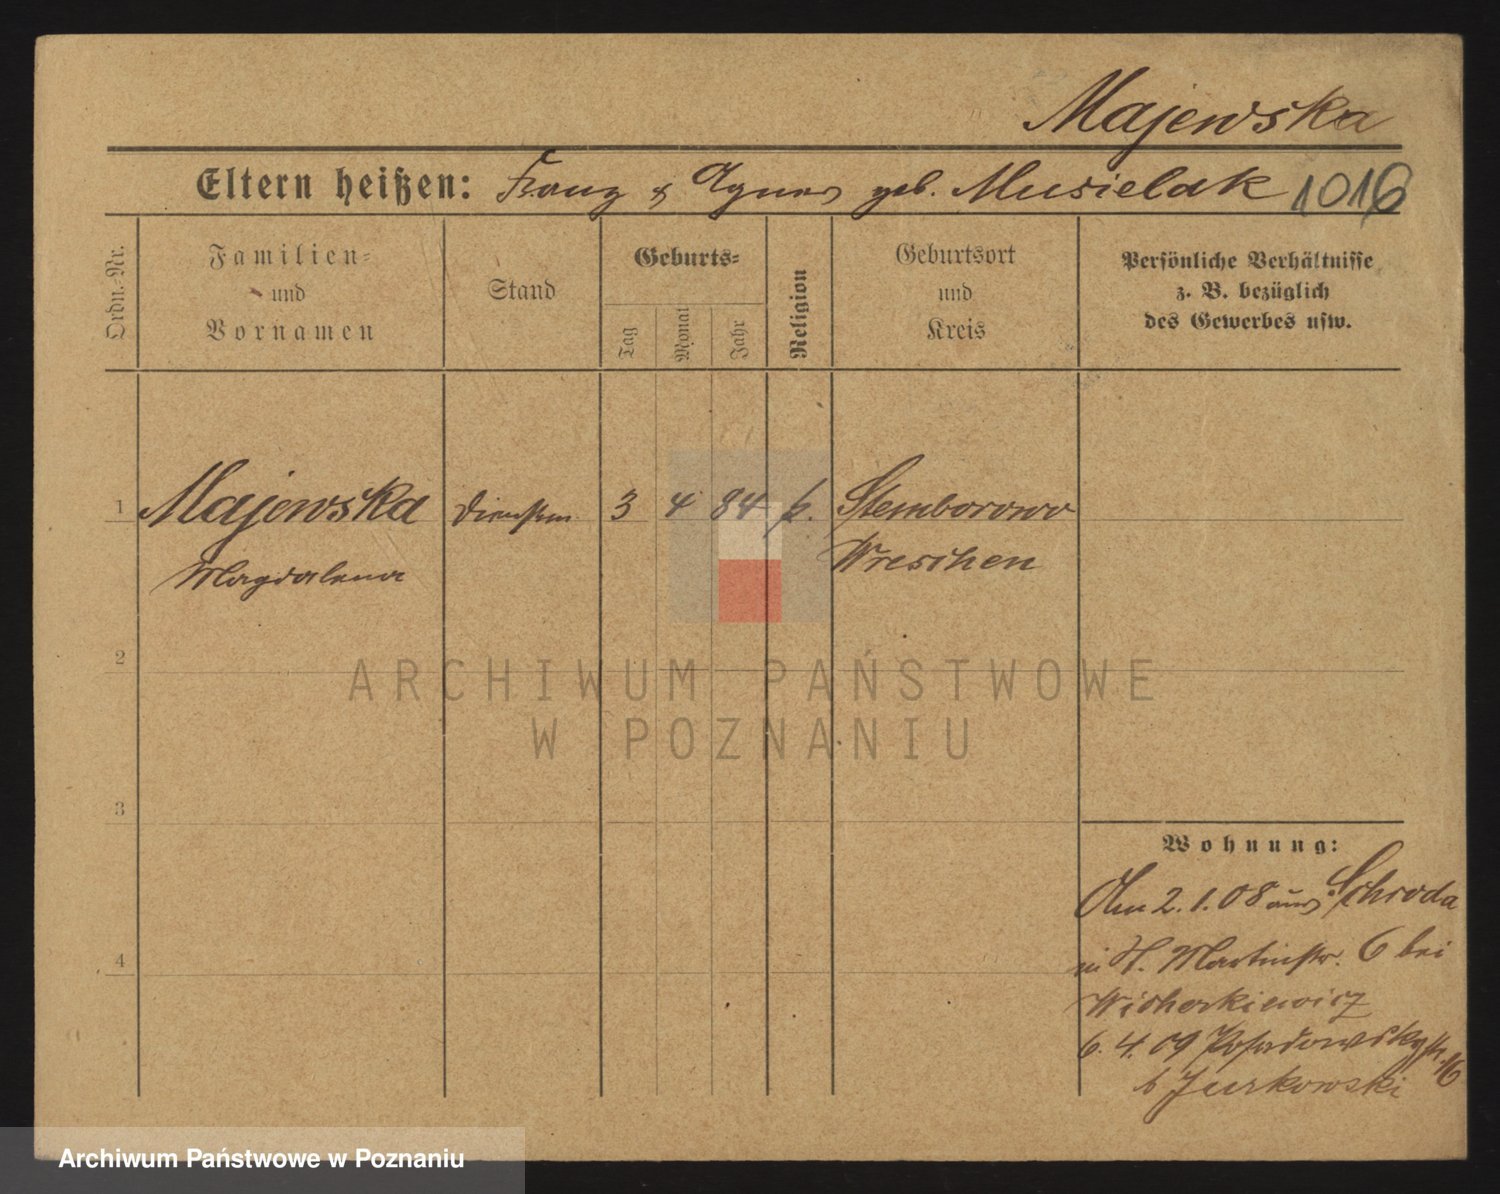 Majewska
Eltern heißen: Franz & Agnes geb. Musielak 1016
Ordn.-Nr.
Familien-
und
Vornamen
Stand
Geburts-
Tag
Monat
Jahr
Religion
Geburtsort
und
Kreis
Persönliche Verhältnisse
z. B. bezüglich
des Gewerbes usw.
1 Majewska Dienstm. 3 4 84 k. Stemborowo
Magdalena Wreschen
2
3
4
Wohnung:
Am 2.1.08 aus Schroda
in St. Martinstr. 6 bei
Wicherkiewicz
6.4.09 Posadowskystr. 16
b Jurkowski
ARCHIWUM PAŃSTWOWE
W POZNANIU
Archiwum Państwowe w Poznaniu